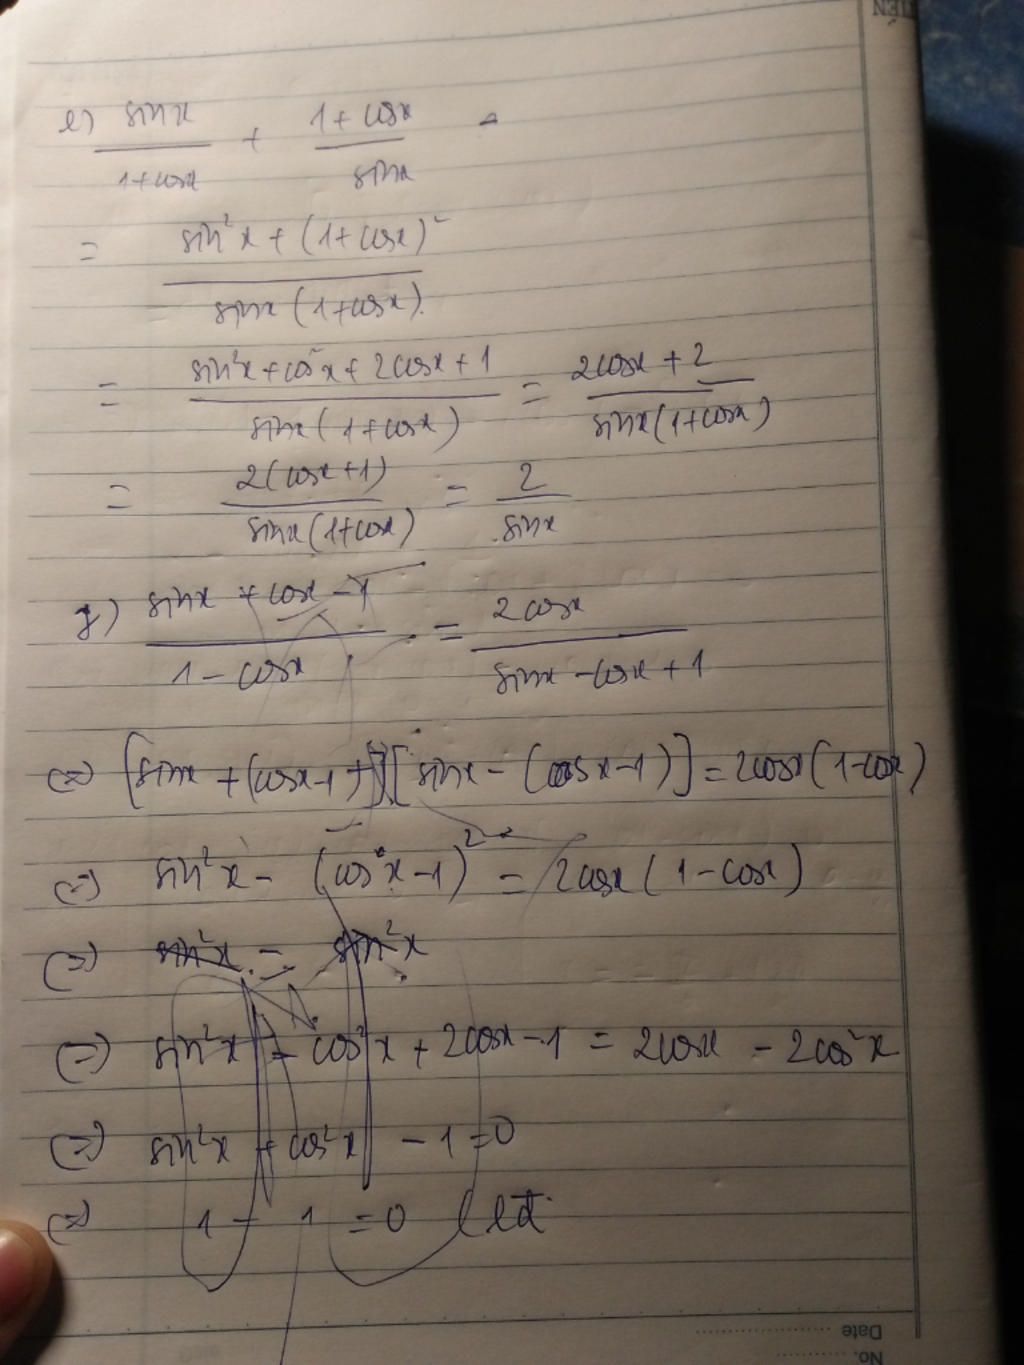 TIẾN
e) sinx/(1+cosx) + (1+cosx)/sinx =
= (sin²x + (1+cosx)²)/(sinx(1+cosx))
= (sin²x + cos²x + 2cosx + 1)/(sinx(1+cosx)) = (2cosx + 2)/(sinx(1+cosx))
= 2(cosx+1)/(sinx(1+cosx)) = 2/sinx
g) (sinx + cosx - 1)/(1 - cosx) = 2cosx/(sinx - cosx + 1)
(=) [sinx + (cosx-1)][sinx - (cosx-1)] = 2cosx(1-cosx)
(=) sin²x - (cosx-1)² = 2cosx(1-cosx)
(=) sin²x = sin²x
(=) sin²x - cos²x + 2cosx - 1 = 2cosx - 2cos²x
(=) sin²x + cos²x - 1 = 0
(=) 1 - 1 = 0 (lđ
Date
No.